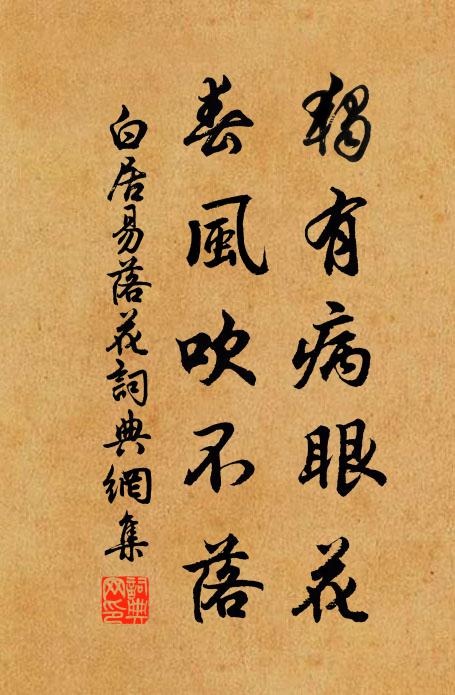 獨有病眼花
春風吹不落
白居易落花詞典網集
詞典
网印